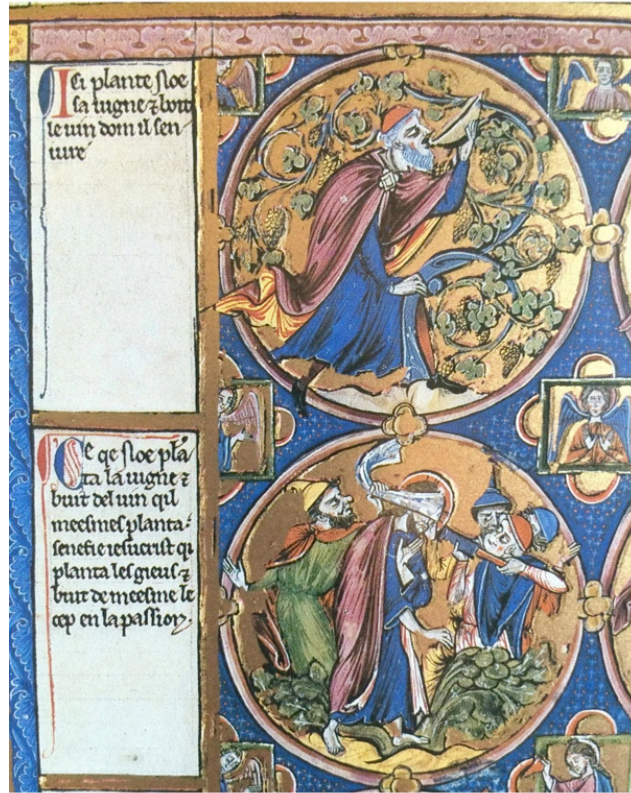 Ici plante noe
sa uigne ⁊ boit
le uin dom il sen
iure
Ce qe noe plā
ta la uigne ⁊
buit del uin qil
meesmes planta
senefie iesucrist qi
planta les gieus ⁊
but de meesme le
cep en la passion.